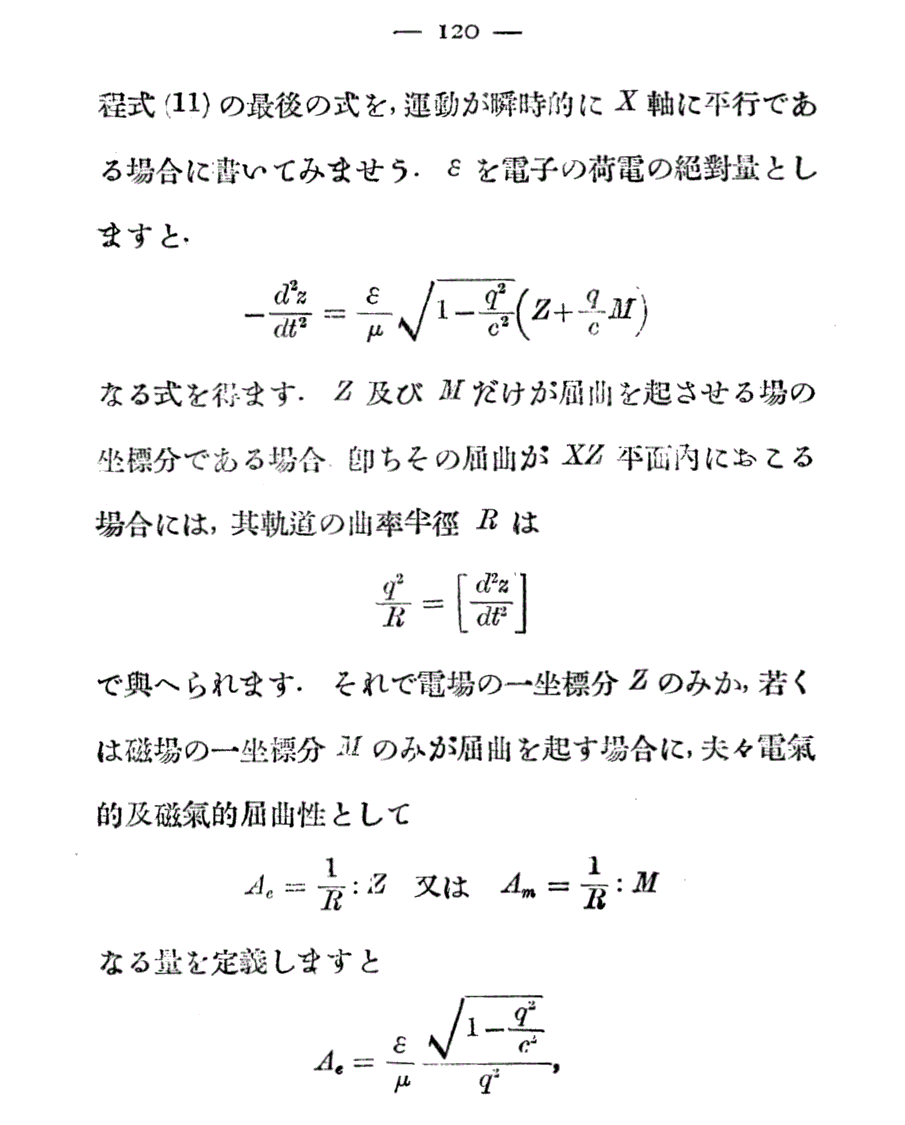 — 120 —
程式 (11) の最後の式を, 運動が瞬時的に X 軸に平行であ
る場合に書いてみませう. ε を電子の荷電の絕對量とし
ますと.
-\frac{d^2z}{dt^2} = \frac{ε}{μ} \sqrt{1-\frac{q^2}{c^2}} (Z+\frac{q}{c}M)
なる式を得ます. Z 及び M だけが屈曲を起させる場の
坐標分である場合. 卽ちその屈曲が XZ 平面內におこる
場合には, 其軌道の曲率半徑 R は
\frac{q^2}{R} = [\frac{d^2z}{dt^2}]
で與へられます. それで電場の一坐標分 Z のみか, 若く
は磁場の一坐標分 M のみが屈曲を起す場合に, 夫々電氣
的及磁氣的屈曲性として
A_e = \frac{1}{R} : Z 又は A_m = \frac{1}{R} : M
なる量を定義しますと
A_e = \frac{ε}{μ} \frac{\sqrt{1-\frac{q^2}{c^2}}}{q^2},